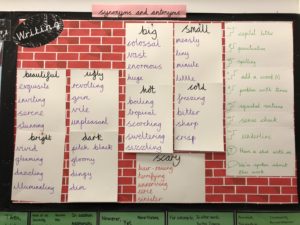 synonyms and antonyms
Writing
beautiful
exquisite
inviting
serene
stunning
bright
vivid
gleaming
dazzling
illuminating
ugly
revolting
grim
vile
unpleasant
dark
pitch black
gloomy
dingy
dim
big
colossal
vast
enormous
huge
hot
boiling
tropical
scorching
sweltering
sizzling
scary
hair-raising
terrifying
unnerving
eerie
sinister
small
teeny
tiny
minute
little
cold
freezing
bitter
sharp
crisp
capital letter
punctuation
spelling
add a word
problem with tense
repeated sentence
sense check
underline
this work
In addition
However,
Yet
For example,